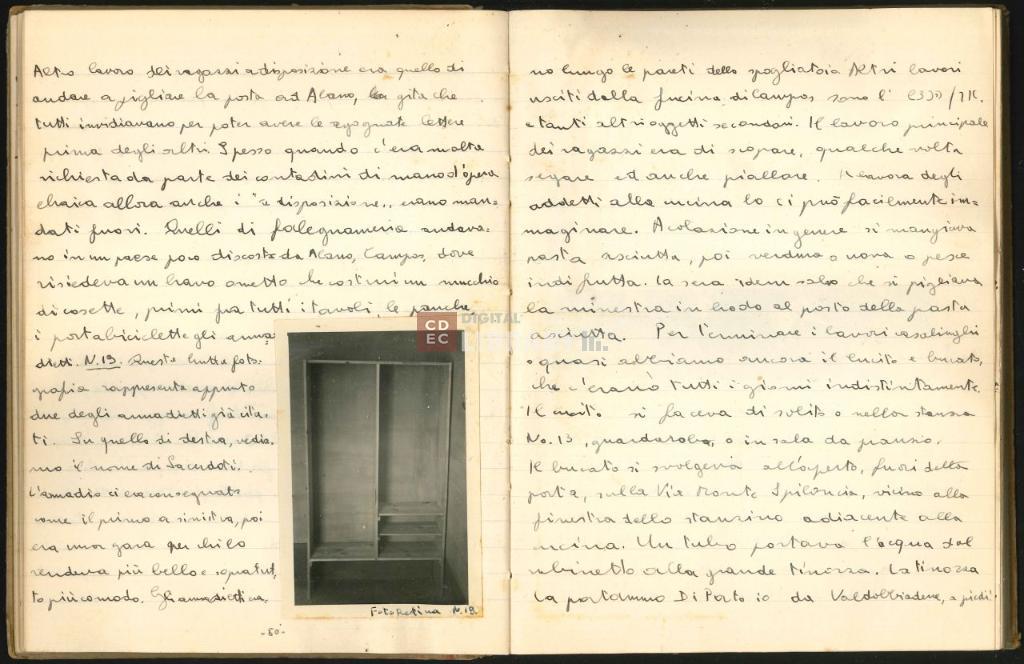 Altro lavoro dei ragazzi a disposizione era quello di
andare a pigliare la posta ad Alano, la gita che
tutti invidiavano per poter avere le agognate lettere
prima degli altri. Spesso quando c'era molta
richiesta da parte dei contadini di mano d'opera
ebraica allora anche i "a disposizione„ erano man=
dati fuori. Quelli di falegnameria andava=
no in un paese poco discosto da Alano, Campos, dove
risiedeva un bravo ometto che costruì un mucchio
di cosette, primi fra tutti i tavoli, le panche,
i portabiciclette gli arma=
dietti. N.19. Questa brutta foto=
grafia rappresenta appunto
due degli armadietti già cita=
ti. In quello di destra, vedia=
mo il nome di Sacerdoti.
L'armadio ci era consegnato
come il primo a sinistra, poi
era una gara per chi lo
rendeva più bello e soprattut=
to più comodo. Gli armadietti era=
FotoRetina N.19.
-80-
no lungo le pareti dello spogliatoio Altri lavori
usciti dalla fucina di Campos sono l'
e tanti altri oggetti secondari. Il lavoro principale
dei ragazzi era di scopare, qualche volta
segare ed anche piallare. Il lavoro degli
addetti alla cucina lo ci può facilmente im=
maginare. A colazione in genere si mangiava
pasta asciutta, poi verdura o uova o pesce
indi frutta. La sera idem salvo che si pigliava
la minestra in brodo al posto della pasta
asciutta. Per terminare i lavori casalinghi
o quasi abbiamo ancora il cucito e bucato,
che c'erano tutti i giorni indistintamente.
Il cucito si faceva di solito o nella stanza
No. 13, guardaroba, o in sala da pranzo.
Il bucato si svolgeva all'aperto, fuori della
porta, sulla Via Monte Spiloncia, vicino alla
finestra dello stanzino adiacente alla
cucina. Un tubo portava l'acqua dal
rubinetto alla grande tinozza. La tinozza
la portammo Di Porto io da Valdobbiadene, a piedi
CDEC DIGITAL